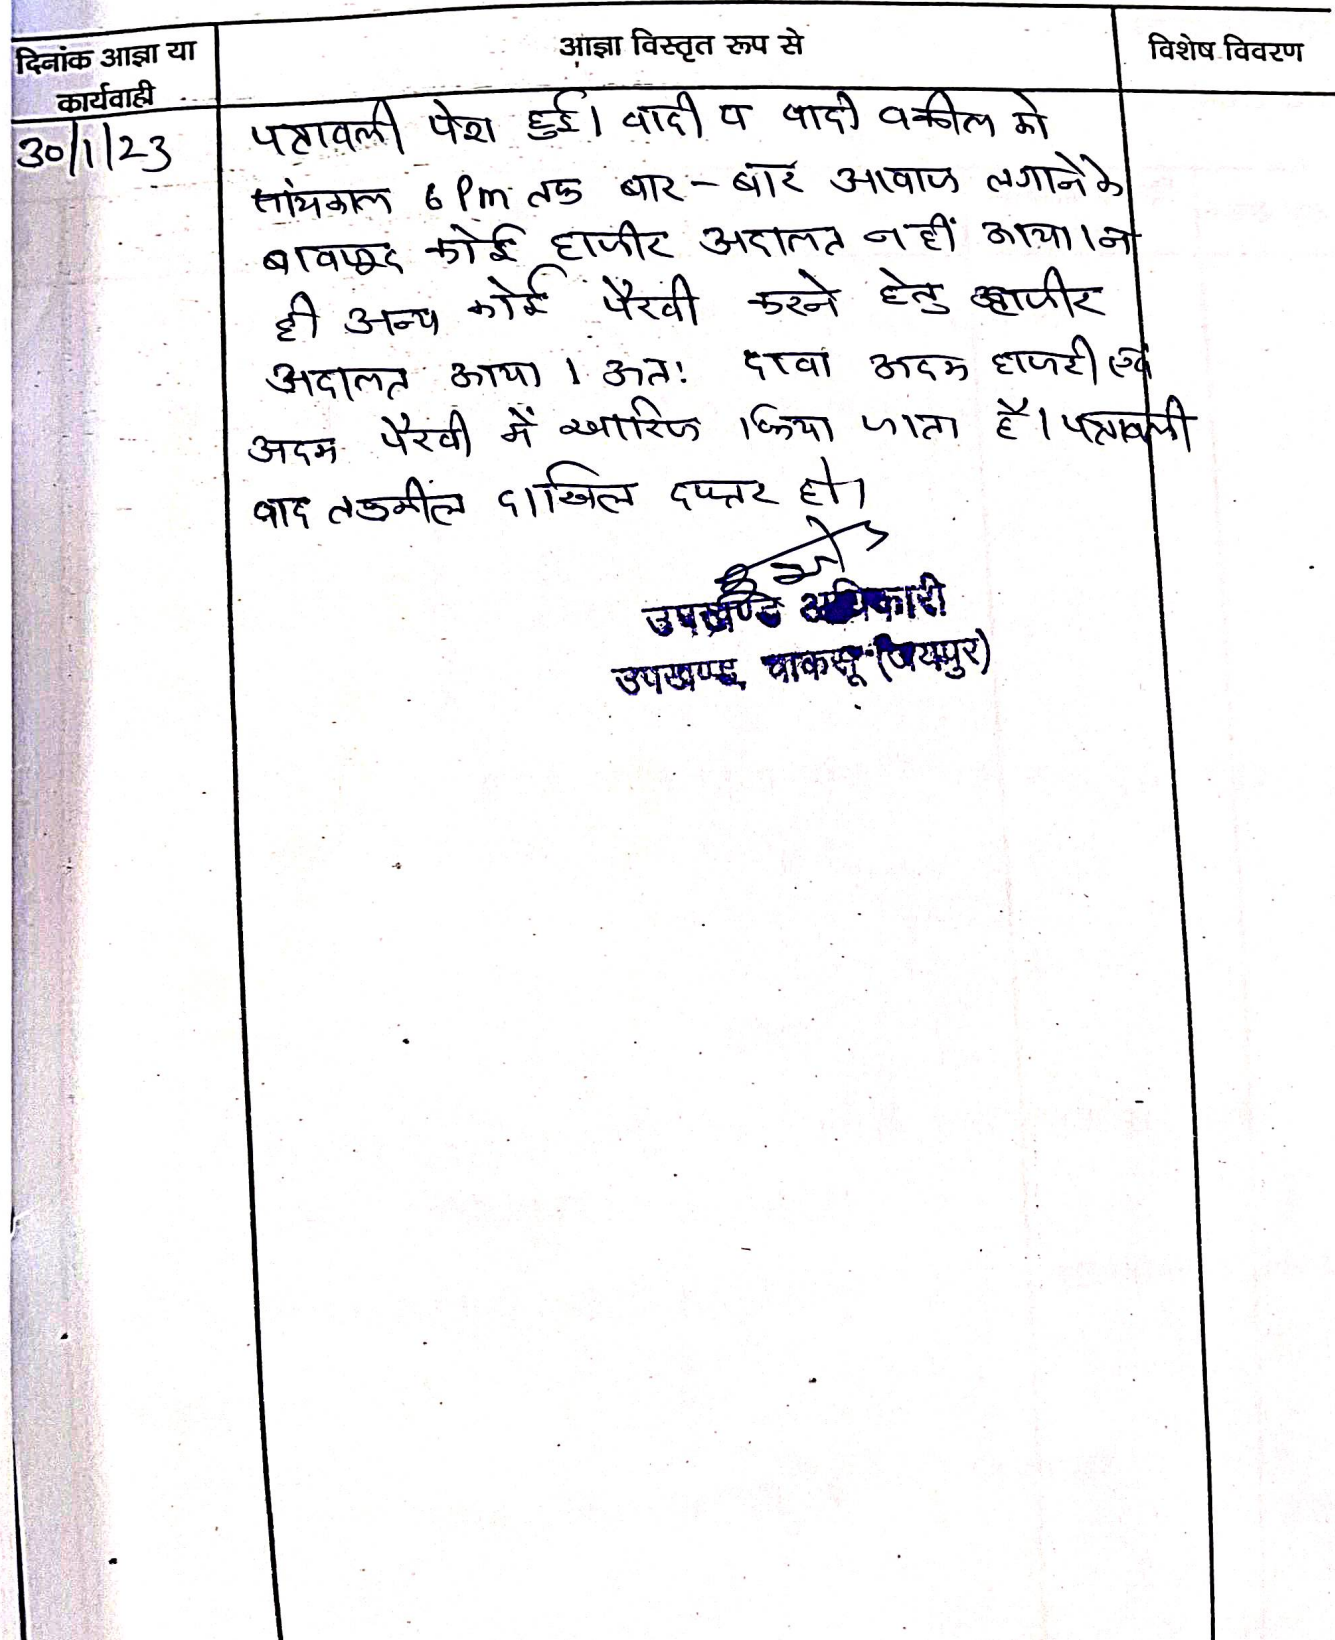 दिनांक आज्ञा या
कार्यवाही
आज्ञा विस्तृत रूप से
विशेष विवरण
30/1/23
पत्रावली पेश हुई। वादी व वादी वकील को
सांयकाल 6 Pm तक बार-बार आवाज लगाने के
बावजूद कोई हाजीर अदालत नहीं आया। न
ही अन्य कोई पैरवी करने हेतु हाजीर
अदालत आया। अतः दावा अदम हाजरी एवं
अदम पैरवी में खारिज किया जाता है। पत्रावली
बाद तकमील दाखिल दफ्तर हो।
उपखण्ड अधिकारी
उपखण्ड चाकसू (जयपुर)